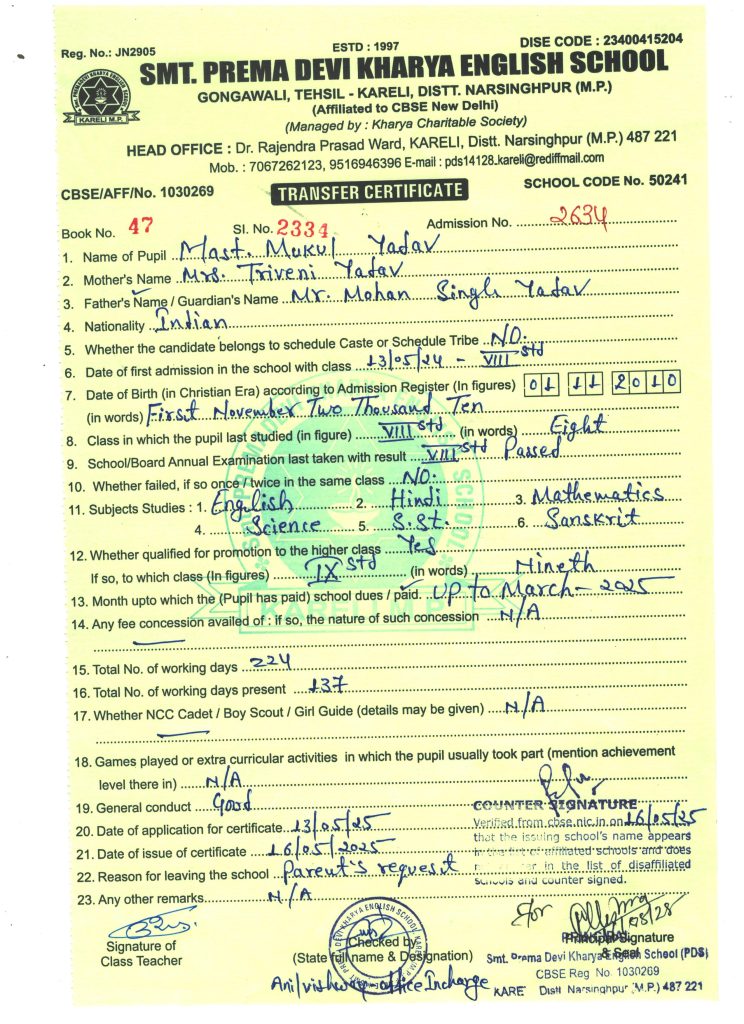 Reg. No.: JN2905
ESTD : 1997
DISE CODE : 23400415204
SMT. PREMA DEVI KHARYA ENGLISH SCHOOL
GONGAWALI, TEHSIL - KARELI, DISTT. NARSINGHPUR (M.P.)
(Affiliated to CBSE New Delhi)
(Managed by : Kharya Charitable Society)
KARELI M.P.
HEAD OFFICE : Dr. Rajendra Prasad Ward, KARELI, Distt. Narsinghpur (M.P.) 487 221
Mob. : 7067262123, 9516946396 E-mail : pds14128.kareli@rediffmail.com
CBSE/AFF/No. 1030269
TRANSFER CERTIFICATE
SCHOOL CODE No. 50241
Book No. 47 Sl. No. 2334 Admission No. 2634
1. Name of Pupil Mast. Mukul Yadav
2. Mother's Name Mrs. Triveni Yadav
3. Father's Name / Guardian's Name Mr. Mohan Singh Yadav
4. Nationality Indian
5. Whether the candidate belongs to schedule Caste or Schedule Tribe NO.
6. Date of first admission in the school with class 13/05/24 - VIII Std
7. Date of Birth (in Christian Era) according to Admission Register (In figures) 01 11 2010
(in words) First November Two Thousand Ten
8. Class in which the pupil last studied (in figure) VIII Std (in words) Eight
9. School/Board Annual Examination last taken with result VIII Std Passed
10. Whether failed, if so once / twice in the same class NO.
11. Subjects Studies : 1. English 2. Hindi 3. Mathematics
4. Science 5. S.St. 6. Sanskrit
12. Whether qualified for promotion to the higher class Yes
If so, to which class (In figures) IX Std (in words) Nineth
13. Month upto which the (Pupil has paid) school dues / paid. UP to March - 2025
14. Any fee concession availed of : if so, the nature of such concession N/A
15. Total No. of working days 224
16. Total No. of working days present 137
17. Whether NCC Cadet / Boy Scout / Girl Guide (details may be given) N/A
18. Games played or extra curricular activities in which the pupil usually took part (mention achievement
level there in) N/A
19. General conduct Good
20. Date of application for certificate 13/05/25
21. Date of issue of certificate 16/05/2025
22. Reason for leaving the school Parent's request
23. Any other remarks N/A
COUNTER SIGNATURE
Verified from cbse.nic.in on 16/05/25
that the issuing school's name appears
in the list of affiliated schools and does
in the list of disaffiliated
schools and counter signed.
Signature of
Class Teacher
Checked by
(State full name & Designation)
office Incharge
Principal Signature
& Seal
Smt. Prema Devi Kharya English School (PDS)
CBSE Reg No. 1030269
KARE Distt Narsinghpur (M.P.) 487 221